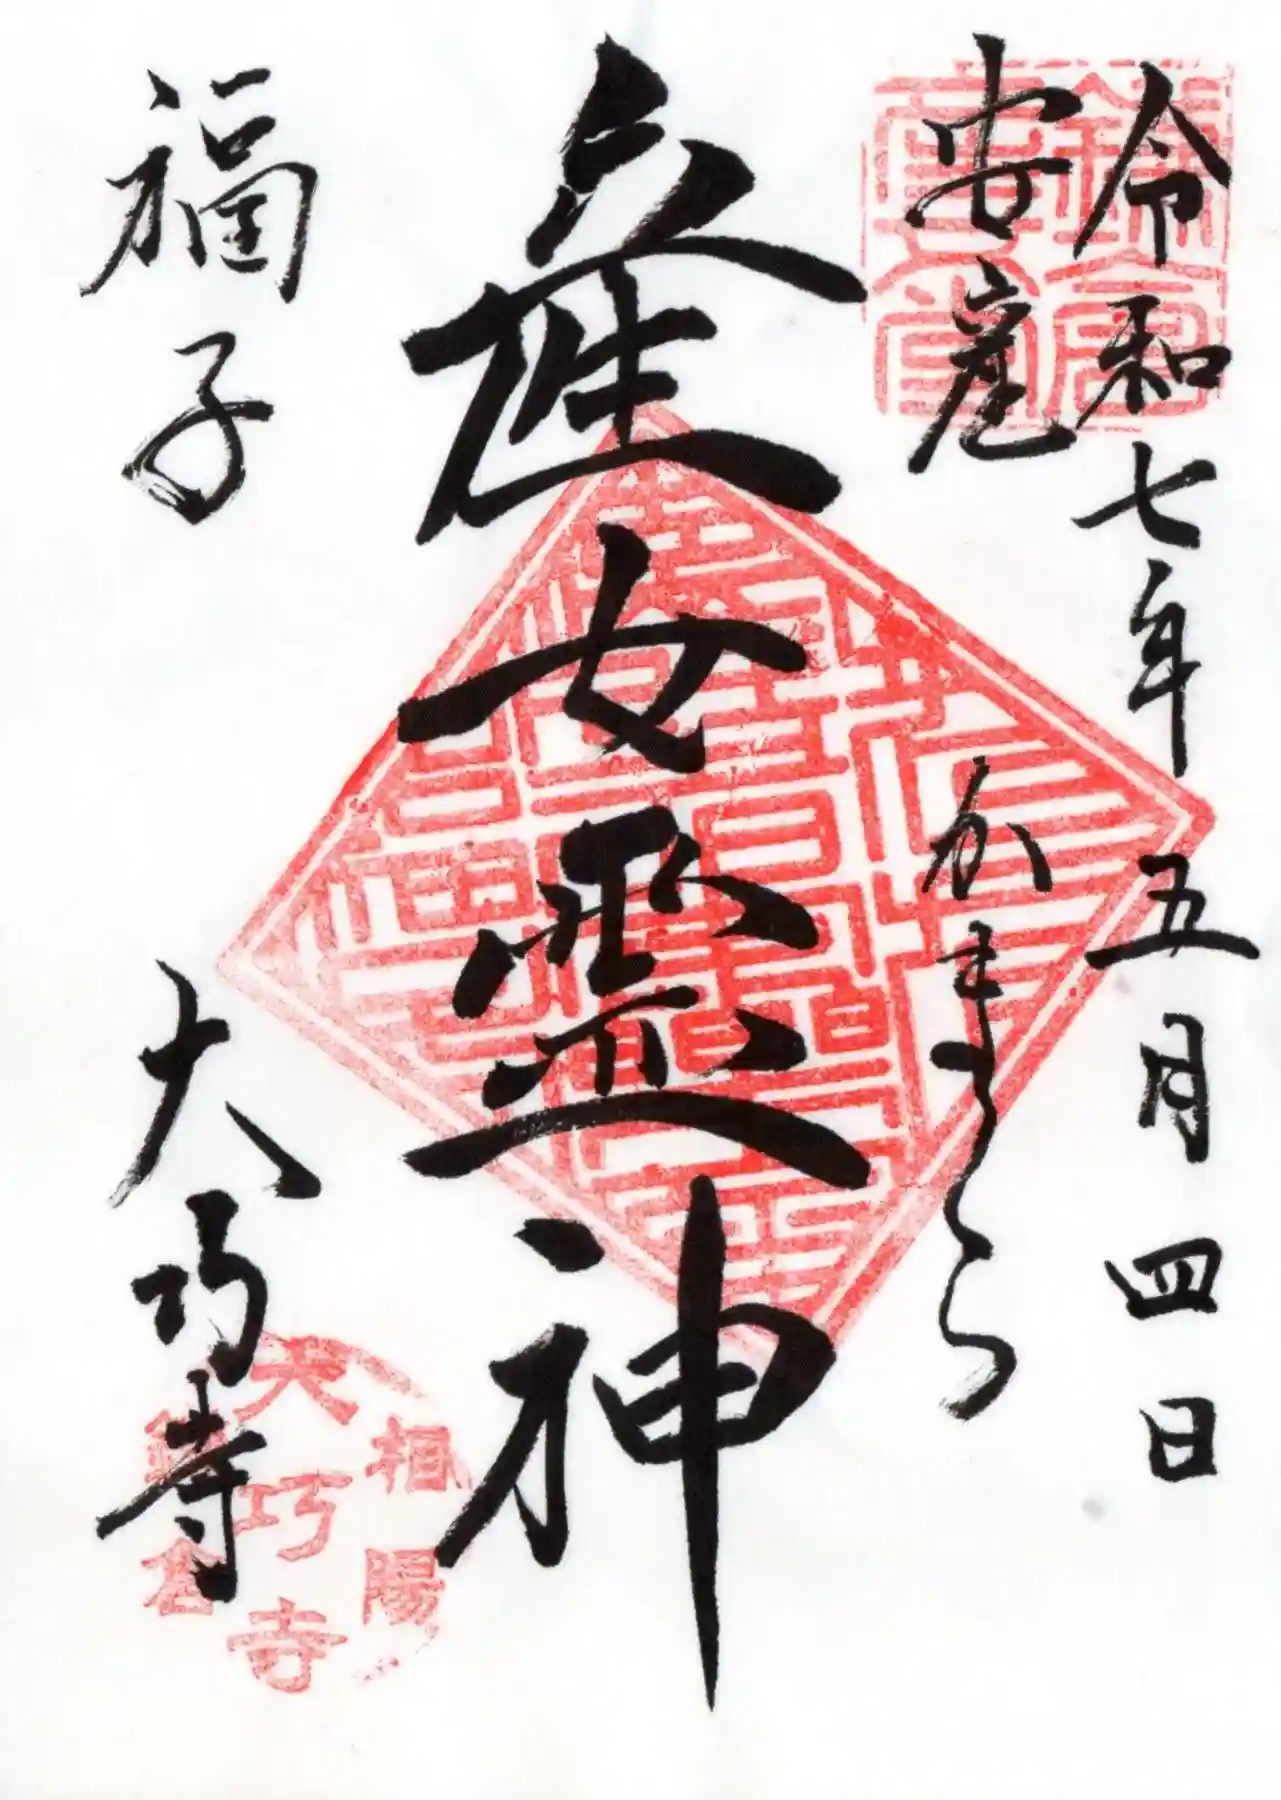 令和七年五月四日
安産
かまくら
産女霊神
福子
大巧寺
相陽
大巧寺
鎌倉